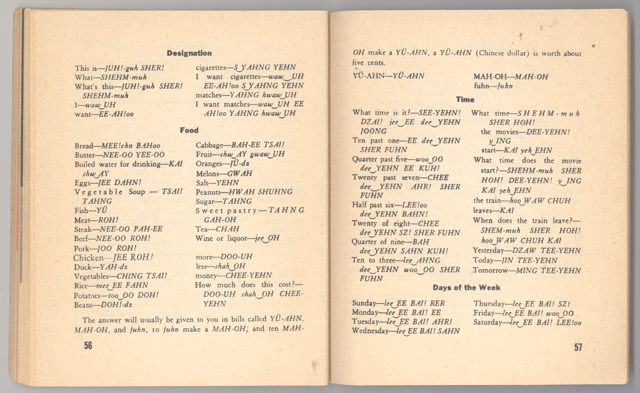 Designation
This is—JUH!-guh SHER!
What—SHEHM-muh
What's this—JUH!-guh SHER!
SHEHM-muh
I—waw_UH
want—EE-AH!oo
cigarettes—S_YAHNG YEHN
I want cigarettes—waw_UH
EE-AH!oo S_YAHNG YEHN
matches—YAHNG hwaw_UH
I want matches—waw_UH EE
AH!oo YAHNG hwaw_UH
Food
Bread—MEE!ehn BAHoo
Butter—NEE-OO YEE-OO
Boiled water for drinking—KAI
shw_AY
Eggs—JEE DAHN!
Vegetable Soup — TSAI!
TAHNG
Fish—YÜ
Meat—ROH!
Steak—NEE-OO PAH-EE
Beef—NEE-OO ROH!
Pork—JOO ROH!
Chicken—JEE ROH!
Duck—YAH-dz
Vegetables—CHING TSAI!
Rice—mee_EE FAHN
Potatoes—too_OO DOH!
Beans—DOH!-dz
Cabbage—BAH-EE TSAI!
Fruit—shw_AY gwaw_UH
Oranges—JÜ-dz
Melons—GWAH
Salt—YEHN
Peanuts—HWAH SHUHNG
Sugar—TAHNG
Sweet pastry—TAHNG
GAH-OH
Tea—CHAH
Wine or liquor—jee_OH
more—DOO-UH
less—shah_OH
money—CHEE-YEHN
How much does this cost?—
DOO-UH shah_OH CHEE-
YEHN
The answer will usually be given to you in bills called YÜ-AHN,
MAH-OH, and fuhn, to fuhn make a MAH-OH; and ten MAH-
56
OH make a YÜ-AHN, a YÜ-AHN (Chinese dollar) is worth about
five cents.
YÜ-AHN—YÜ-AHN
MAH-OH—MAH-OH
fuhn—fuhn
Time
What time is it?—SEE-YEHN!
DZAI! jee_EE dee_YEHN
JOONG
Ten past one—EE dee_YEHN
SHER FUHN
Quarter past five—woo_OO
dee_YEHN EE KUH!
Twenty past seven—CHEE
dee_YEHN AHR! SHER
FUHN
Half past six—LEE!oo
dee_YEHN BAHN!
Twenty of eight—CHEE
dee_YEHN SZ! SHER FUHN
Quarter of nine—BAH
dee_YEHN SAHN KUH!
Ten to three—lee_AHNG
dee_YEHN woo_OO SHER
FUHN
What time—SHEHM-muh
SHER HOH!
the movies—DEE-YEHN!
y_ING
start—KAI yeh_EHN
What time does the movie
start?—SHEHM-muh SHER
HOH! DEE-YEHN! y_ING
KAI yeh_EHN
the train—hoo_WAW CHUH
leaves—KAI
When does the train leave?—
SHEM-muh SHER HOH!
hoo_WAW CHUH KAI
Yesterday—DZAW TEE-YEHN
Today—JIN TEE-YEHN
Tomorrow—MING TEE-YEHN
Days of the Week
Sunday—lee_EE BAI! RER
Monday—lee_EE BAI! EE
Tuesday—lee_EE BAI! AHR!
Wednesday—lee_EE BAI! SAHN
Thursday—lee_EE BAI! SZ!
Friday—lee_EE BAI! woo_OO
Saturday—lee_EE BAI! LEE!oo
57